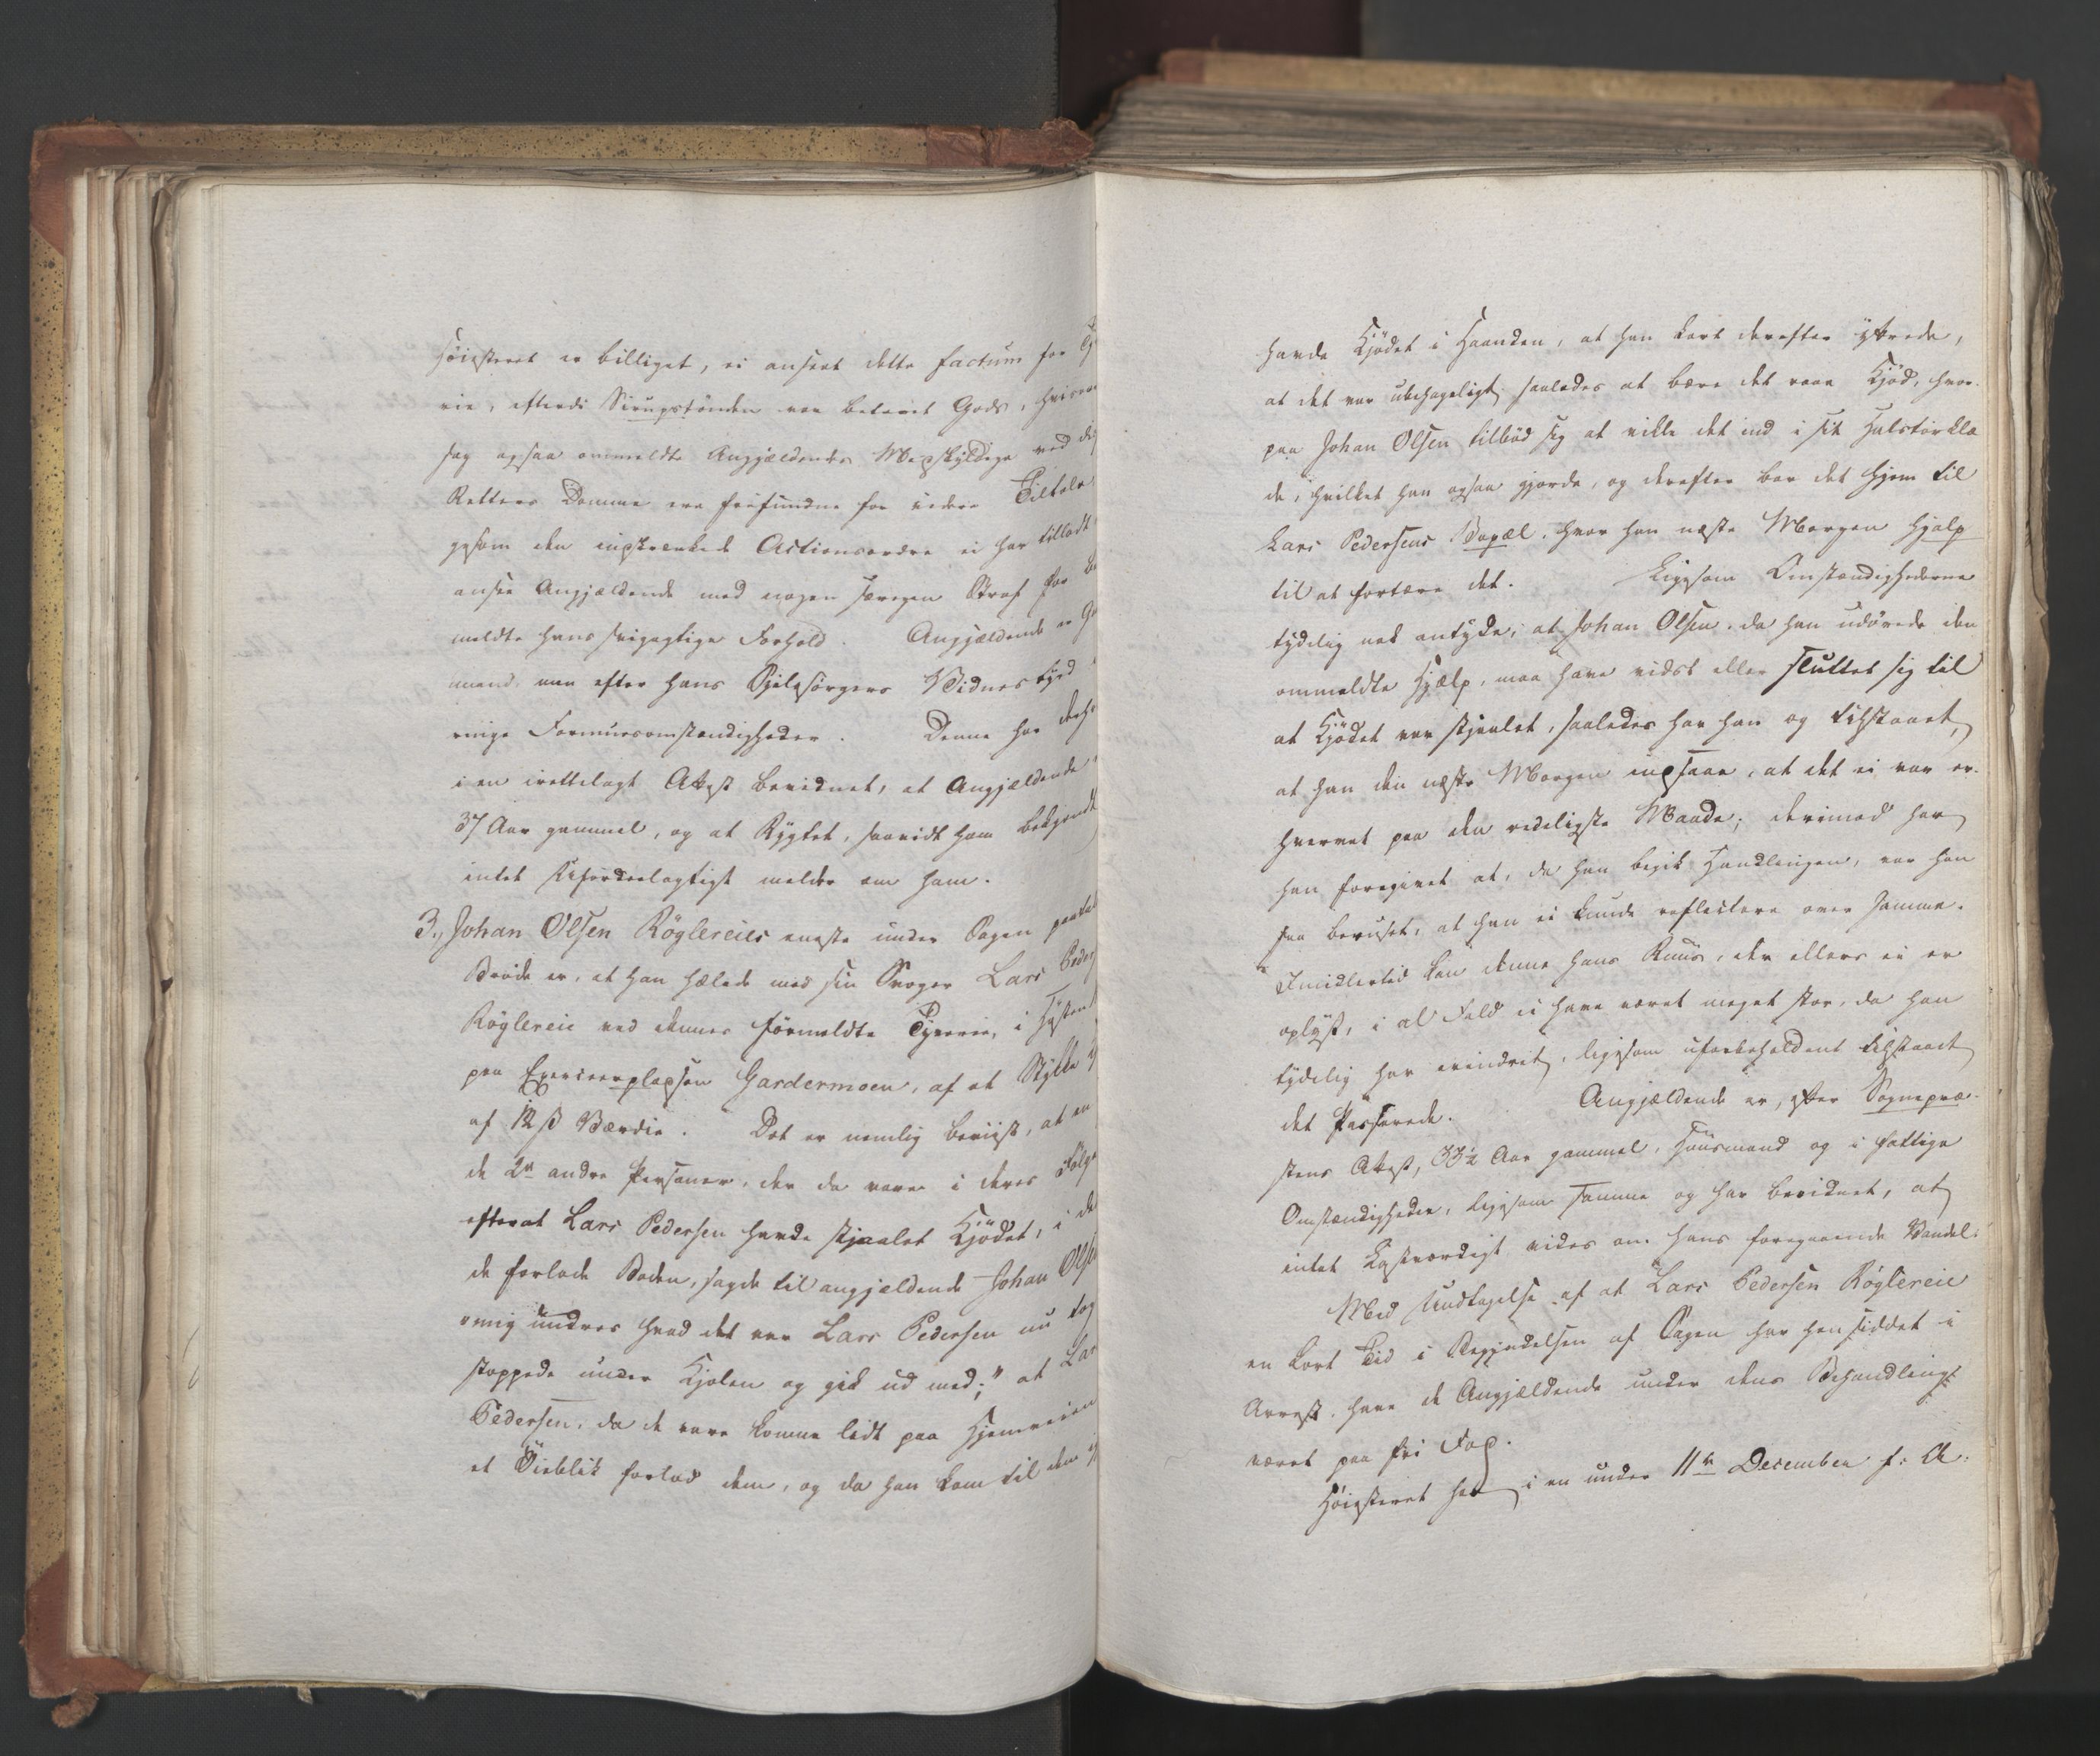 Høiesteret er billiget, ei anseet dette factum for Ty
rie, efterdi Sirupstønden var betroet Gods, hvis
sag ogsaa ommeldte Angjældendes Medskyldige ved dis
Retters Domme ere frifundne for videre Tiltale
gesom den indskrænkede Actionsordre ei har tilladt
ansee Angjældende med nogen særegen Straf for
meldte hans svigagtige Forhold. Angjældende er
mand, men efter hans Sjelesørgers Vidnesbyrd
ringe Formuesomstændigheder. Denne har derh
i en irettelagt Attest bevidnet, at Angjældende
37 Aar gammel, og at Rygtet, saavidt ham bekjendt
intet Ufordeelagtigt melder om ham.
3, Johan Olsen Røglereies eneste under Sagen paatal
Brøde er, at han hælede med sin Svoger Lars Peder
Røglereie ved dennes førmeldte Tyverie, i Høsten
paa Exerceerpladsen Gardermoen, af et Stykke
af 12 ß Værdie. Det er nemlig beviist, at en
de 2de andre Personer, der da vare i deres Følge
efterat Lars Pedersen havde stjaalet Kjødet, i de
de forlode Boden, sagde til angjældende Johan Olse
"mig undres hvad det var Lars Pedersen nu tog
stoppede under Kjolen og gik ud med;" at Lar
Pedersen, da de vare komne lidt paa Hjemveien
et Øieblik forlod dem, og da han kom til dem
havde Kjødet i Haanden, at han kort derefter yttrede,
at det var ubehageligt saaledes at bære det raae Kjød, hvor-
paa Johan Olsen tilbød sig at vikle det ind i sit Halstørklæ
de, hvilket han ogsaa gjorde, og derefter bar det hjem til
Lars Pedersens Bopæl, hvor han næste Morgen hjalp
til at fortære det. Ligesom Omstændighederne
tydelig nok antyde, at Johan Olsen, da han udøvede den
ommeldte Hjælp, maa have vidst eller sluttet sig til
at Kjødet var stjaalet, saaledes har han og tilstaaet,
at han den næste Morgen indsaae, at det ei var er-
hvervet paa den redeligste Maade; derimod har
han foregivet at, da han begik Handlingen, var han
saa beruset, at han ei kunde reflectere over samme.
Imidlertid kan denne hans Ruus, der ellers ei er
oplyst, i al Fald ei have været meget stor, da han
tydelig har erindret, ligesom uforbeholdent tilstaaet
det Passerede. Angjældende er, efter Sognepræ-
stens Attest, 33½ Aar gammel, Huusmand og i fattige
Omstændigheder, ligesom samme og har bevidnet, at
intet Lastværdigt vides om hans foregaaende Vandel.
Med Undtagelse af at Lars Pedersen Røglereie
en kort Tid i Begyndelsen af Sagen har hensiddet i
Arrest, have de Angjældende under dens Behandling
været paa fri Fod.
Høiesteret har i en under 11te December f. A.